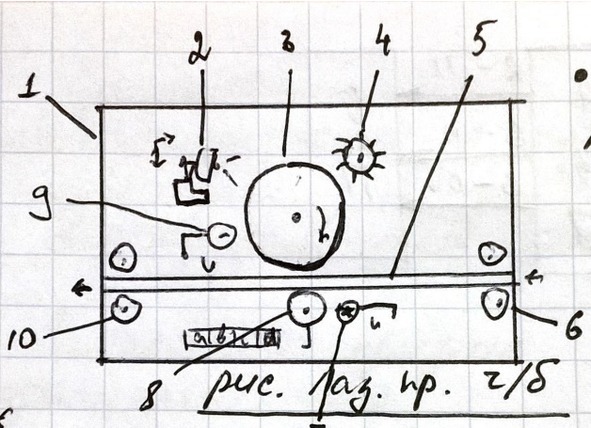 2 3 4 5
1
9
10
6
8
рис. лаз. пр. ч/б